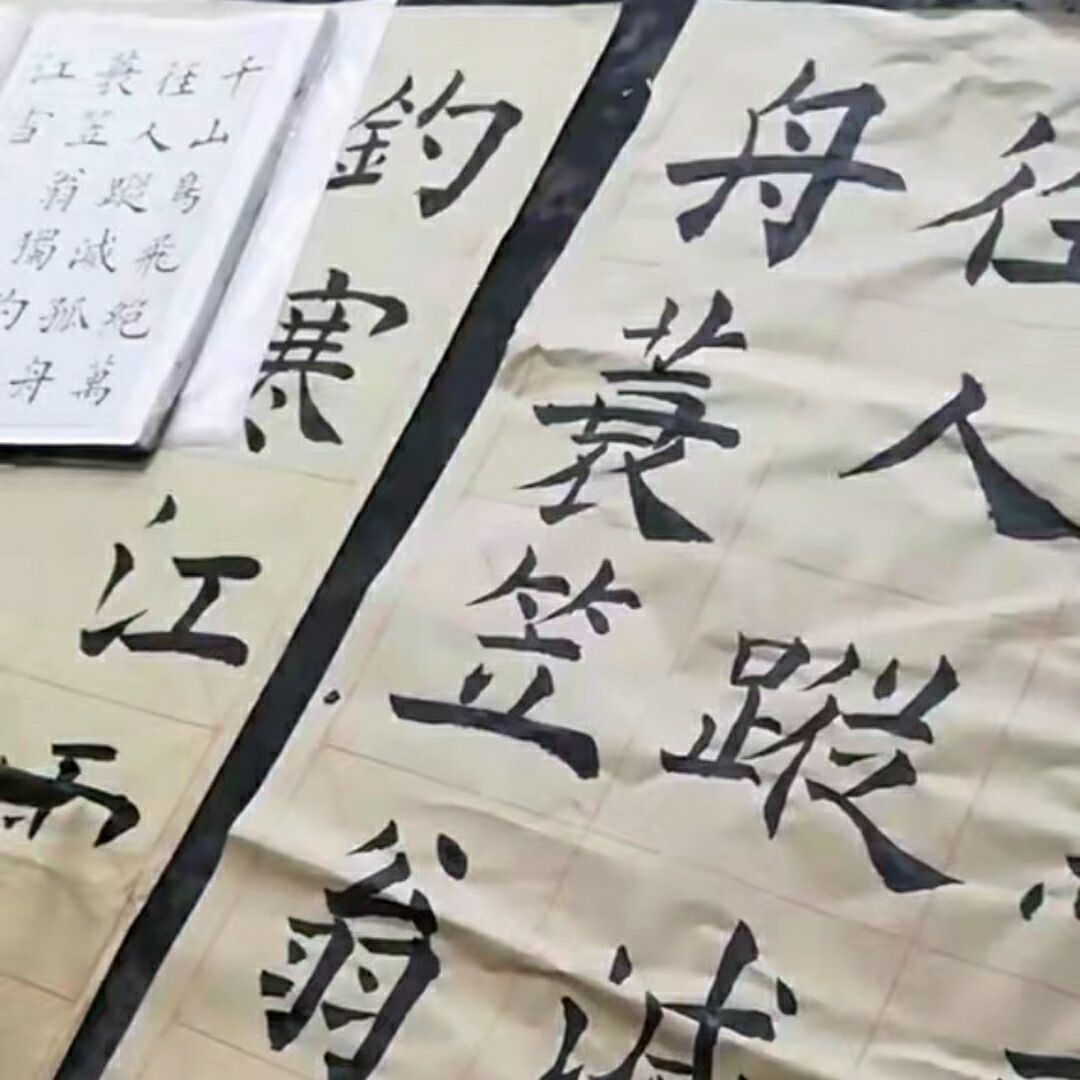 径人蹤滅
舟蓑笠翁
釣寒江
千山鳥飛絶萬
径人蹤滅孤舟
蓑笠翁獨釣
江雪